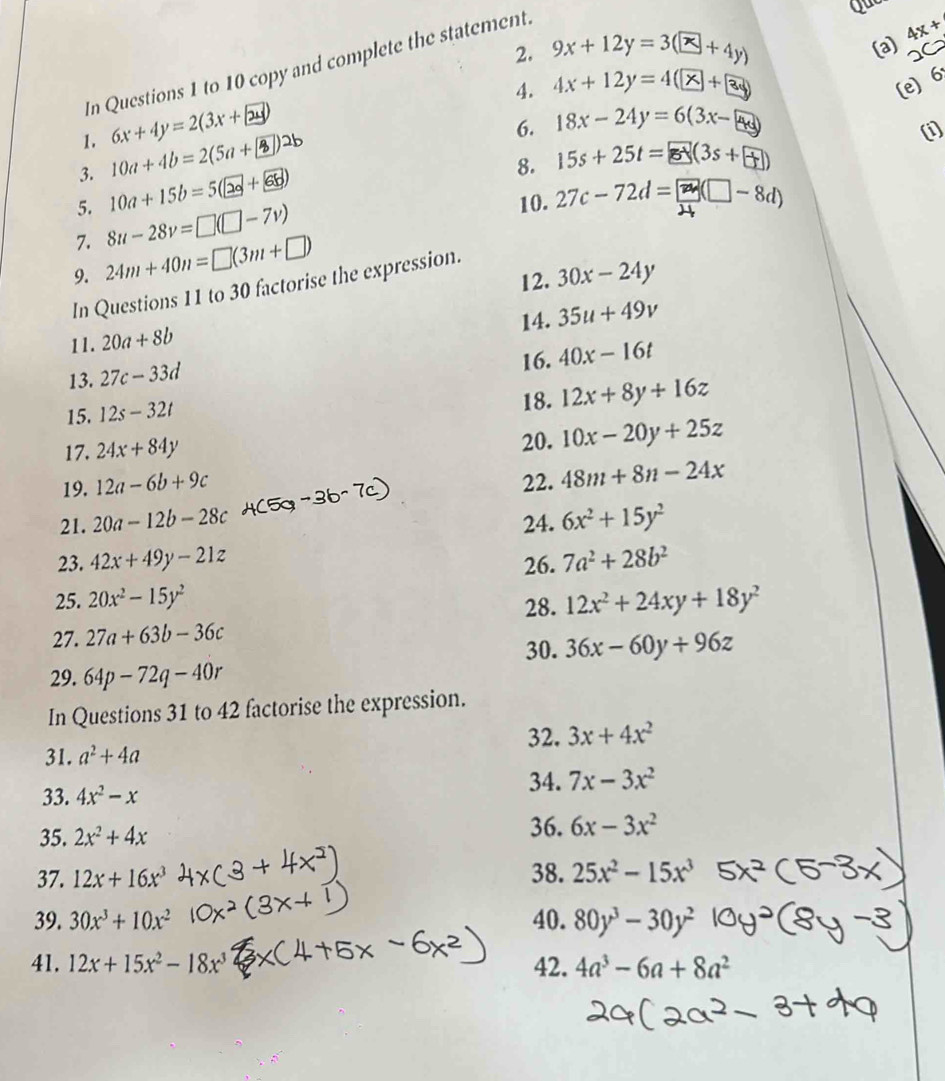 Qu
(a) 4x +
(e) 6
(i)
In Questions 1 to 10 copy and complete the statement.
1. 6x + 4y = 2(3x + 2y)
2. 9x + 12y = 3(x + 4y)
3. 10a + 4b = 2(5a + □) 2b
4. 4x + 12y = 4(x + 3y)
5. 10a + 15b = 5(2a + □)
6. 18x − 24y = 6(3x − 4y)
7. 8u − 28v = □(□ − 7v)
8. 15s + 25t = □(3s + □)
9. 24m + 40n = □(3m + □)
10. 27c − 72d = □(□ − 8d)
In Questions 11 to 30 factorise the expression.
11. 20a + 8b
12. 30x − 24y
13. 27c − 33d
14. 35u + 49v
15. 12s − 32t
16. 40x − 16t
17. 24x + 84y
18. 12x + 8y + 16z
19. 12a − 6b + 9c
20. 10x − 20y + 25z
21. 20a − 12b − 28c 4(5a − 3b − 7c)
22. 48m + 8n − 24x
23. 42x + 49y − 21z
24. 6x² + 15y²
25. 20x² − 15y²
26. 7a² + 28b²
27. 27a + 63b − 36c
28. 12x² + 24xy + 18y²
29. 64p − 72q − 40r
30. 36x − 60y + 96z
In Questions 31 to 42 factorise the expression.
31. a² + 4a
32. 3x + 4x²
33. 4x² − x
34. 7x − 3x²
35. 2x² + 4x
36. 6x − 3x²
37. 12x + 16x³ 4x(3 + 4x²)
38. 25x² − 15x³ 5x²(5 − 3x)
39. 30x³ + 10x² 10x²(3x + 1)
40. 80y³ − 30y² 10y²(8y − 3)
41. 12x + 15x² − 18x³ 3x(4 + 5x − 6x²)
42. 4a³ − 6a + 8a²
2a(2a² − 3 + 4a